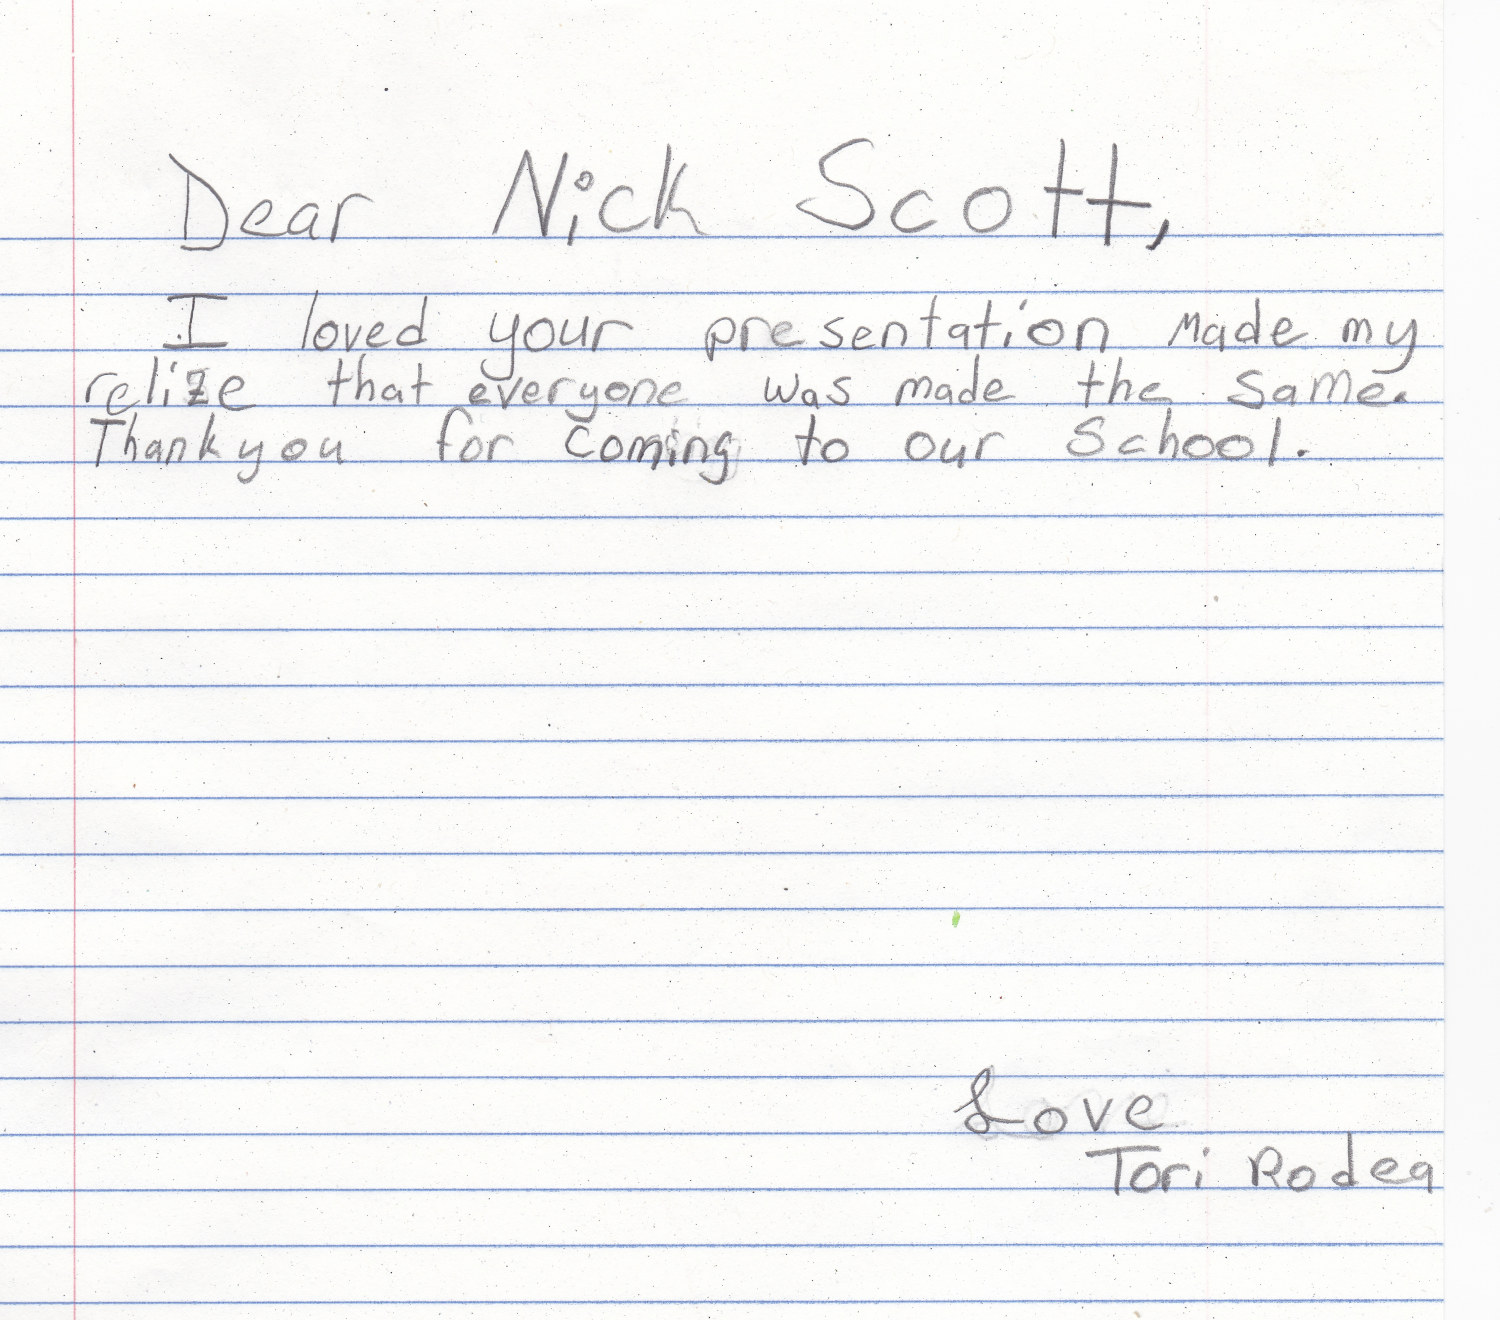 Dear Nick Scott,
I loved your presentation made my
relize that everyone was made the same.
Thank you for coming to our School.
Love
Tori Rodea